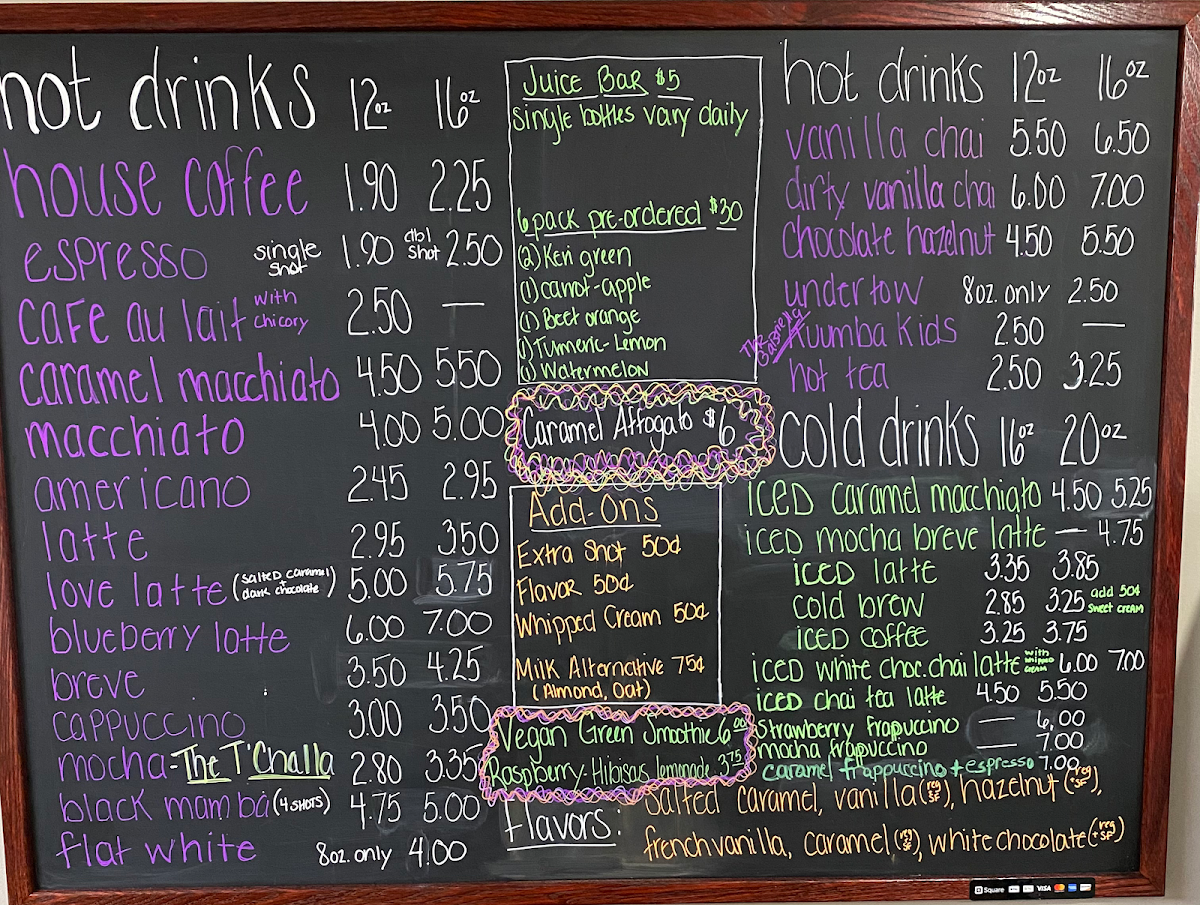 hot drinks 12oz 16oz
house coffee 1.90 2.25
espresso single shot 1.90 dbl shot 2.50
cafe au lait with chicory 2.50 —
caramel macchiato 4.50 5.50
macchiato 4.00 5.00
americano 2.45 2.95
latte 2.95 3.50
love latte (salted caramel + dark chocolate) 5.00 5.75
blueberry latte 6.00 7.00
breve 3.50 4.25
cappuccino 3.00 3.50
mocha - The T'Challa 2.80 3.35
black mamba (4 shots) 4.75 5.00
flat white 8oz. only 4.00
Juice Bar $5
single bottles vary daily
6 pack pre-ordered $30
(2) Keri green
(1) carrot-apple
(1) Beet orange
(1) Tumeric-Lemon
(1) Watermelon
Caramel Affogato $6
Add-Ons
Extra Shot 50¢
Flavor 50¢
Whipped Cream 50¢
Milk Alternative 75¢
(Almond, Oat)
Vegan Green Smoothie 6.00
Raspberry-Hibisus lemonade 3.75
hot drinks 12oz 16oz
vanilla chai 5.50 6.50
dirty vanilla chai 6.00 7.00
chocolate hazelnut 4.50 5.50
undertow 8oz. only 2.50
The
Kuumba Kids 2.50 —
hot tea 2.50 3.25
cold drinks 16oz 20oz
iced caramel macchiato 4.50 5.25
iced mocha breve latte — 4.75
iced latte 3.35 3.85
cold brew 2.85 3.25 add 50¢ sweet cream
iced coffee 3.25 3.75
iced white choc. chai latte with whipped cream 6.00 7.00
iced chai tea latte 4.50 5.50
Strawberry frappuccino — 6.00
mocha frappuccino — 7.00
caramel frappuccino + espresso 7.00
Flavors: Salted caramel, vanilla (reg SF), hazelnut (reg + SF),
french vanilla, caramel (reg SF), white chocolate (reg + SF)
Square VISA